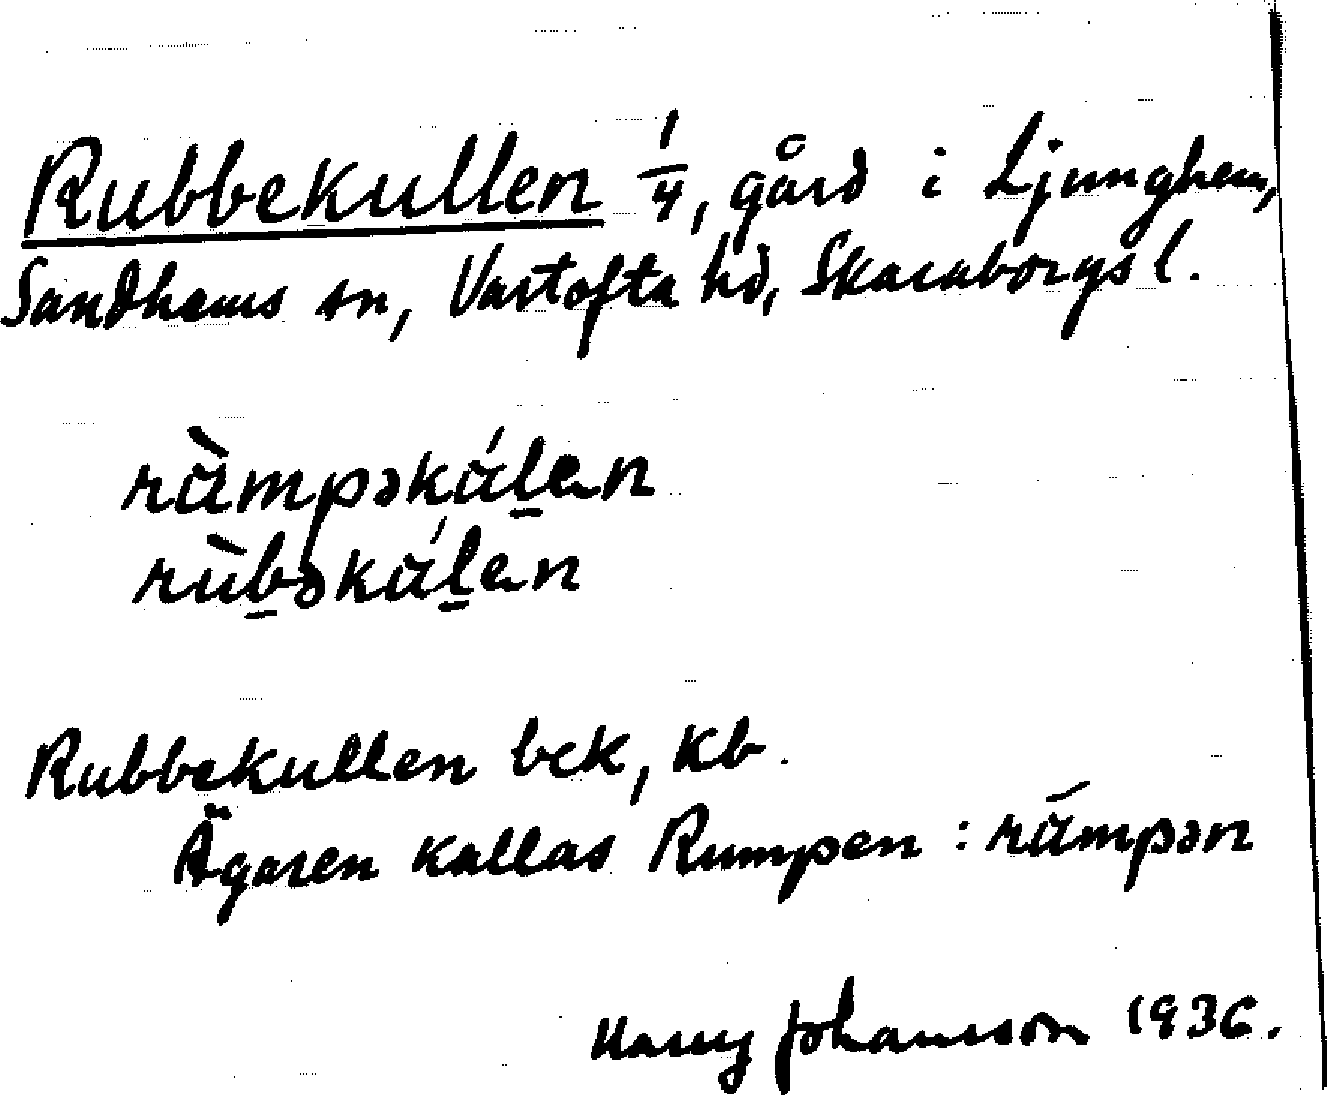 Rubbekullen 1/4, gård i Ljunghem,
Sandhems sn, Vartofta hd, Skaraborgs l.
rằmpəkúḻen
rùḇəkúḻen
Rubbekullen bek, kb.
Ägaren kallas Rumpen : rắmpən
Harry Johansson 1936.